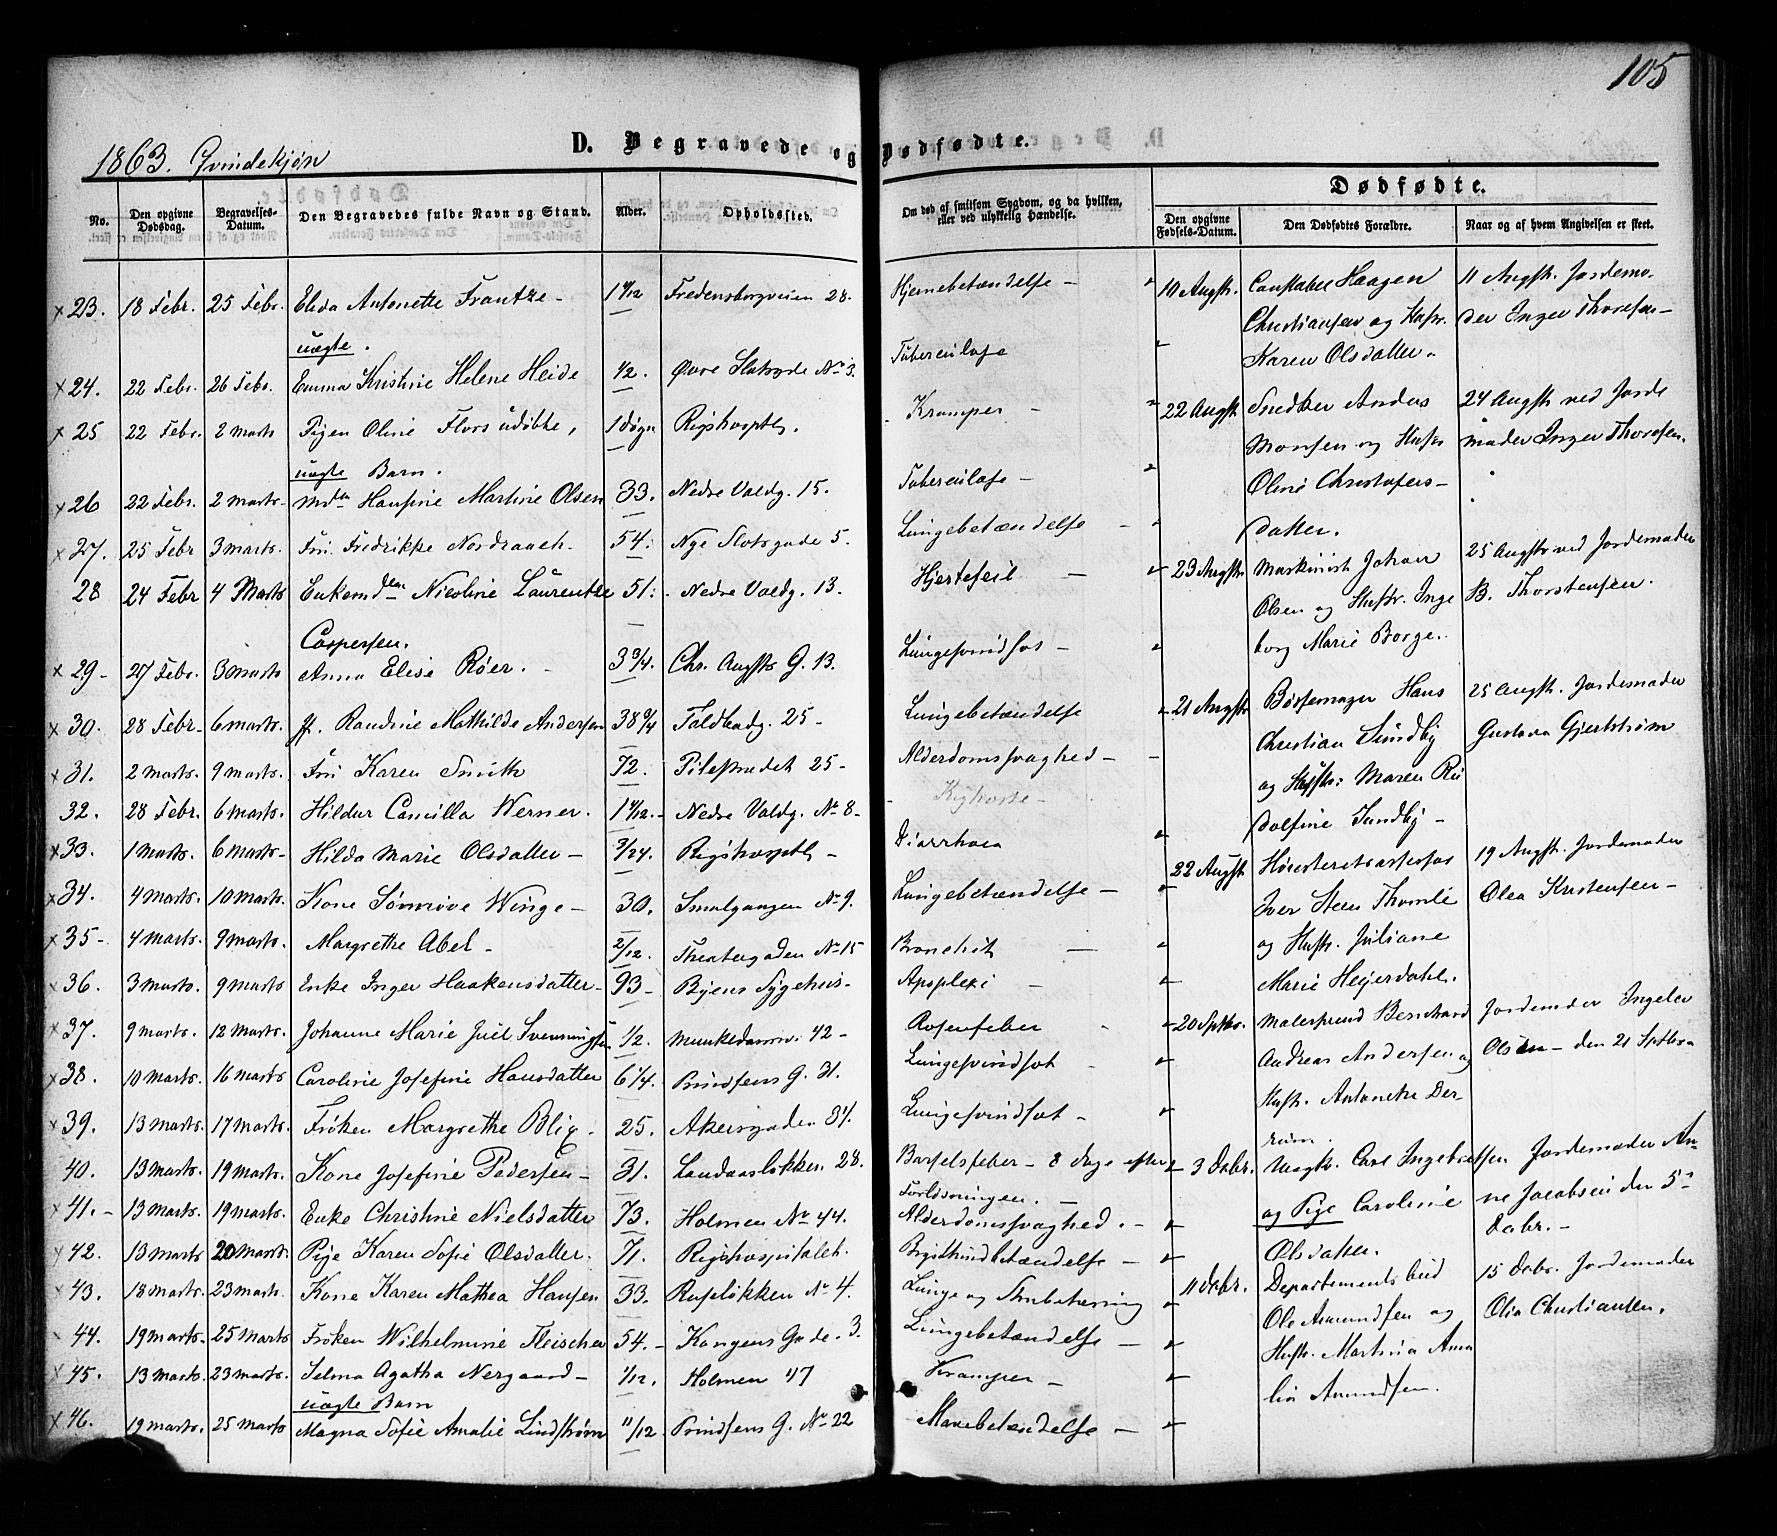 105
1863. Qvindekjøn
D. Begravede og Dødfødte.
No.
Den opgivne Dødsdag.
Begravelses-Datum.
Den Begravedes fulde Navn og Stand.
Alder.
Opholdssted.
Om død af smitsom Sygdom, og da hvilken, eller ved ulykkelig Hændelse.
Dødfødte.
Den opgivne Fødsels-Datum.
Den Dødfødtes Forældre.
Naar og af hvem Angivelsen er skeet.
x 23. 18 Febr. 25 Febr. Elida Antonette Frantze - 1 Fredensborgveien 28. Hjernebetændelse -
uægte.
x 24. 22 Febr. 26 Febr. Emma Kristine Helene Heide 1/2. Øvre Slotsgde No 3. Tuberculose
x 25 22 Febr. 2 Marts Pigen Oline Flors udøbte, 1 døgn Rigshosptl. Kramper -
uægte Barn.
x 26 22 Febr. 2 Marts - Mdm Hansine Martine Olsen 33. Nedre Voldg. 15. Tuberculose -
x 27. 25 Febr 3 Marts. Fru Fredrikke Nordraach. 54. Nye Slotsgade 5. Lungebetændelse -
28 24 Febr 4 Marts Enkemdm Nicoline Laurentze 51. Nedre Voldg. 13. Hjertefeil -
Caspersen.
x 29 - 27 Febr. 3 Marts Anna Elise Røer. - 3 3/4. Chr. Augsts G. 13. Lungesvindsot -
x 30. 28 Febr. 6 Marts. Jf. Randine Mathilde Andersen 38 Foldbadg. 25 - Lungebetændelse
x 31. 2 Marts. 9 Marts. Fru Karen Smith 72. Pilestrædet 25 - Alderdomssvaghed -
32. 28 Febr. 6 Marts. Hildur Camilla Werner. 1 Nedre Voldg. No 8 - Kighoste -
x 33. 1 Marts. 6 Marts - Hilda Marie Olsdatter - 3/24. Rigshosptl - Diarrhoea
x 34. 4 Marts. 10 Marts. Kone Sønnøve Winge - 30. Smalgangen No 9. Lungebetændelse -
x 35 - 4 Marts. 9 Marts. Margrethe Abel - 2/12. Theatergaden No 15 Bronchit -
x 36. 3 Marts. 9 Marts Enke Inger Haakensdatter - 93 - Byens Sygehus - Apoplexi -
x 37. 9 Marts. 12 Marts. Johanne Marie Juel Svenningsen 1/2. Munkedamsv. 42 - Rosenfeber
x 38. 10 Marts. 16 Marts Caroline Josefine Hansdatter 6 1/4. Prindsens G. 31. Lungesvindsot
x 39. 13 Marts. 17 Marts. Frøken Margrethe Blix. 25. Akersgaden 31. Lungesvindsot -
40. 13 Marts. 19 Marts. Kone Josefine Pedersen - 31. 28. Barselsfeber - 8 dage efter
Forløsningen. -
x 41. - 13 Marts. 19 Marts. Enke Christine Nielsdatter 73. Holmen No 44. Alderdomssvaghed. -
42. 13 Marts. 20 Marts. Pige Karen Sofie Olsdatter. 71. Rigshospitalet. Brysthindebetændelse -
x 43. 18 Marts. 23 Marts. Kone Karen Mathea Hansen 33. Ruseløkken No 4. Lunge og Strubetæring
44. 19 Marts. 25 Marts Frøken Wilhelmine Fleischer 54. - Kongens Gade. 3. Lungebetændelse -
x 45. 13 Marts. 23 Marts. Selma Agatha Nergaard - 1/12. Holmen 47 Kramper -
uægte Barn
x 46. 19 Marts. 25 Marts Magna Sofie Amalie Lindstrøm 11/12 Prindsens G. No 22 Mavebetændelse -
10 Augst. Constabel Haagen 11 Augst. Jordemo-
Christiansen og Hustr. der Inger Thoresen -
Karen Olsdatter.
22 Augst Snedker Anders 24 Augst ved Jorde
Monsen og Hustr moder Inger Thoresen.
Oline Christofers -
datter.
23 Augst. Maskinist Johan 25 Augst ved Jordemoder
Olsen og Hustr. Inge B. Thorstensen.
borg Marie Borge.
21 Augst Børsemager Hans 25 Augst. Jordemoder
Christian Sundby Gustava Gjertstrøm
og Hustr. Maren Ru
dolfine Sundby -
22 Augst Høiesteretsassessor 19 Augst. Jordemoder
Iver Steen Thomle Olea Kristensen -
og Hustr. Juliane
Marie Heyerdahl.
20 Septbr. Malersvend Bernhard Jordemoder Ingeler
Andreas Andersen og Olsen - den 21 Septbr.
Hustr. Antonette Der-
rum.
3 Decbr. Uægte. Carl Ingebretsen. Jordemoder An-
og Pige Caroline ne Jacobsen den 5te
Olsdatter. Decbr. -
11 Decbr. Departementsbud 15 Decbr. Jordemoder
Ole Amundsen og Olia Christiansen.
Hustr. Martina Ama
lia Amundsen.